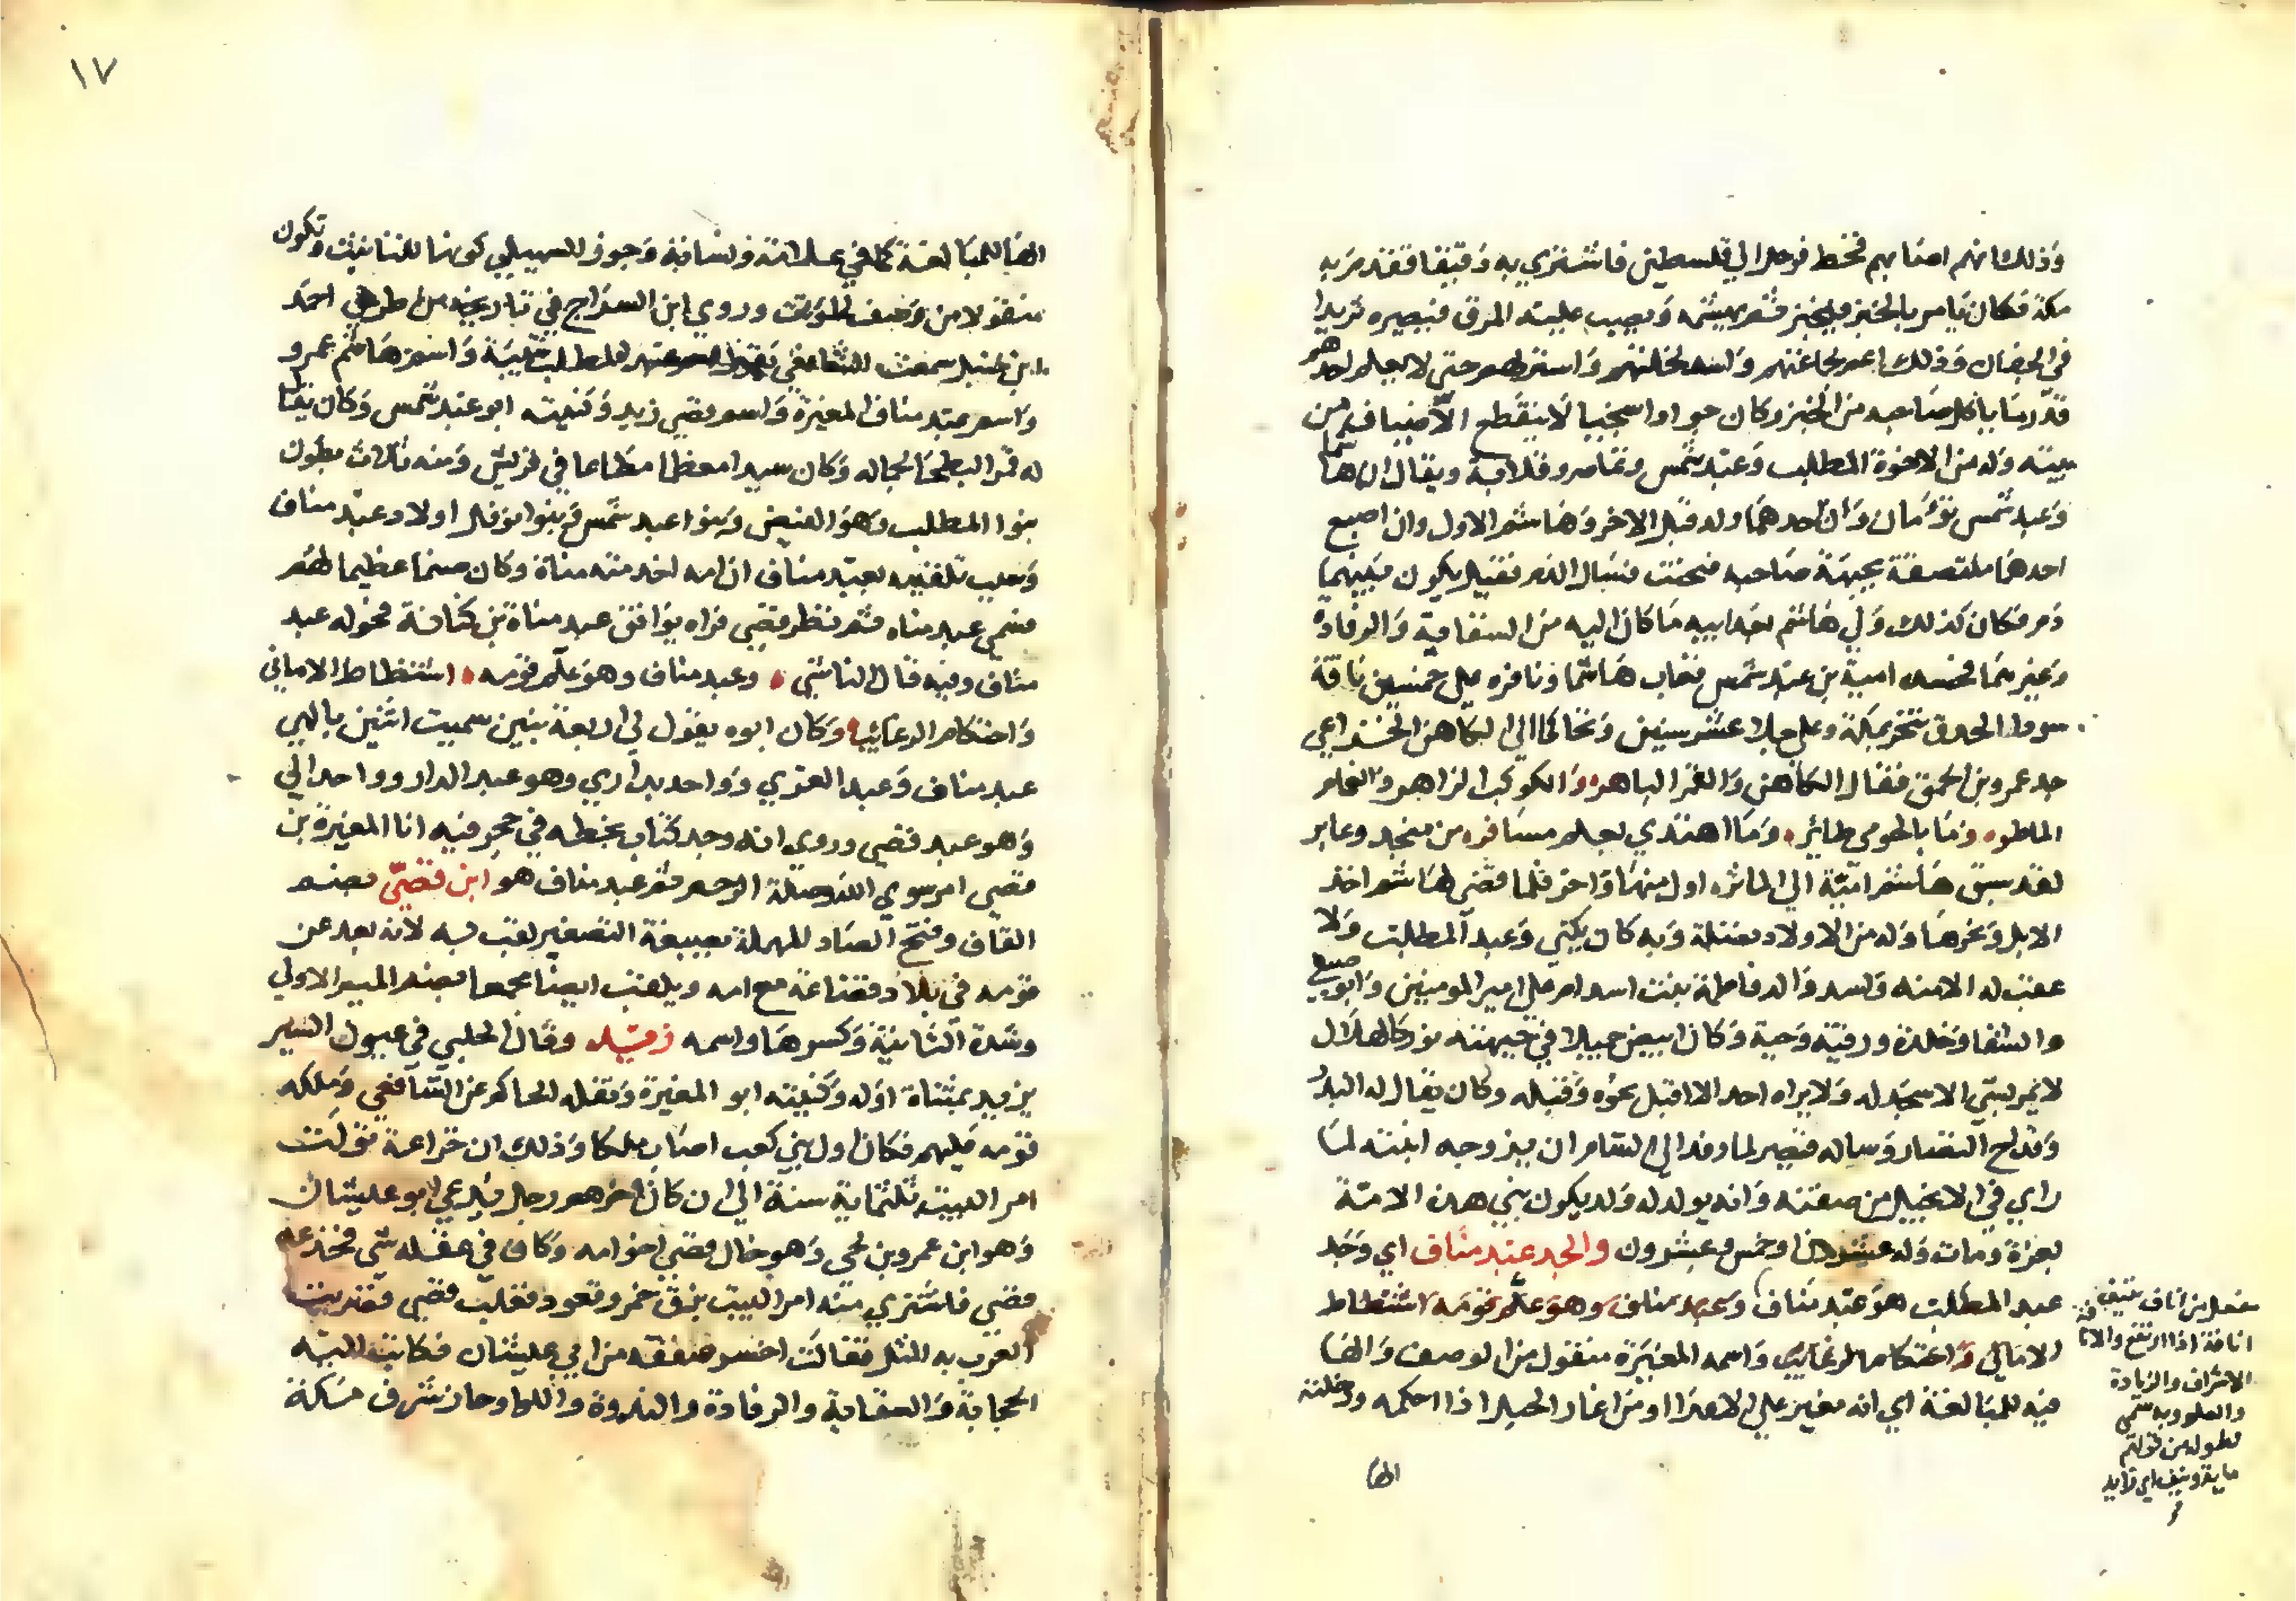 وذلك انهم اصابهم قحط فرحل الي فلسطين فاشتري به دقيقا فقدم به
مكة فكان يامر بالخبز فيخبز ثم يهشم ويصب عليه المرق فيصيره ثريدا
في الجفان وذلك اعم لمجاعتهم واسد لخلتهم واستر لهم حتي لا يعلم احدهم
قدر ما ياكل صاحبه من الخبز وكان جوادا سخيا لا ينقطع الاضياف من
بيته وله من الاخوة المطلب وعبد شمس وتماضر وقلابة ويقال ان هاشما
وعبد شمس توأمان وان احدهما ولد قبل الاخر وهاشم الاول وان اصبع
احدهما ملتصقة بجبهة صاحبه فنحيت فسال الدم فقيل يكون بينهما
دم فكان كذلك ولي هاشم بعد ابيه ما كان اليه من السقاية والرفادة
وغيرهما فحسده امية بن عبد شمس فعاب هاشما ونافره علي خمسين ناقة
سود الحدق تنحر بمكة وعلي جلاء عشر سنين وتحاكما الي الكاهن الخزاعي
جد عمرو بن الحمق فقال الكاهن والقمر الباهر والكوكب الزاهر والغمام
الماطر وما بالجو من طائر وما اهتدي بعلم مسافر من منجد وغاير
لقد سبق هاشم امية الي الماثر اول منها واخر فلما قضي لهاشم اخذ
الابل ونحرها وله من الاولاد نضلة وبه كان يكني وعبد المطلب ولا
عقب له الا منه واسد والد فاطمة بنت اسد ام علي امير المومنين وابو صيفي
والشفا وخلدة ورقية وحية وكان ابيض جميلا في جبهته نور كالهلال
لا يمر بشي الا سجد له ولا يراه احد الا اقبل نحوه وقبله وكان يقال له البدر
وقدح النضار وساله قيصر لما وفد الي الشام ان يزوجه ابنته لما
راي في الانجيل من صفته وانه يولد له ولد يكون نبي هذه الامة
بغزة ومات وله عشرون او خمس وعشرون والجد عبد مناف اي وجد
عبد المطلب هو عبد مناف وعبد مناف وهو علم نومه اشتطاط
الاماني واحتكام الرغائب واسمه المغيرة منقول من الوصف والها
فيه للمبالغة اي انه مغير علي الاعدا او من اغار الحبل اذا احكمه ودخلته
الها
مفعل من اناف ينيف
انافة اذا ارتفع والانافة
الاشراف والزيادة
والعلو وبه سمي
لطوله من قولهم
ماية ونيف اي زايد
١٧
الها للمبالغة كما في علامة ونسابة وجوز السهيلي كونها للتانيث وتكون
منقولا من وصف لمونث وروي ابن السراج في تاريخه من طريق احمد
ابن حنبل سمعت الشافعي يقول اسم عبد المطلب شيبة واسم هاشم عمرو
واسم عبد مناف المغيرة واسم قصي زيد وكنيته ابو عبد شمس وكان يقال
له قمر البطحا لجماله وكان سيدا معظما مطاعا في قريش ومنه ثلاث بطون
بنوا المطلب وهو الفيض وبنوا عبد شمس وبنوا نوفل اولاد عبد مناف
وسبب تلقيبه بعبد مناف ان امه اخدمته مناة وكان صنما عظيما لهم
فسمي عبد مناه ثم نظر قصي فراه يوافق عبد مناة بن كنانة فحوله عبد
مناف وفيه قال الناشي وعبد مناف وهو علم قومه اشتطاط الاماني
واحتكام الرغائب وكان ابوه يقول لي اربعة بنين سميت اثنين بالهي
عبد مناف وعبد العزي وواحد بداري وهو عبد الدار وواحدا لي
وهو عبد قصي وروي انه وجد كتاب بخطه في حجر فيه انا المغيرة بن
قصي امر بتقوي الله وصلة الرحم ثم عبد مناف هو ابن قصي بضم
القاف وفتح الصاد المهملة بصيغة التصغير لقب به لانه بعد عن
قومه في بلاد قضاعة مع امه ويلقب ايضا مجمعا بضم الميم الاولي
وشدة الثانية وكسرها واسمه زيد وقال الحلبي في عيون السير
يزيد بمثناة اوله وكنيته ابو المغيرة ونقله الحاكم عن الشافعي وملكه
قومه عليهم فكان اول بني كعب اصاب ملكا وذلك ان خزاعة تولت
امر البيت ثلثماية سنة الي ان كان اخرهم رجل يدعي ابو غبشان
وهو ابن عمرو بن لحي وهو خال قصي اخو امه وكان في عقله شي فخدعه
قصي فاشتري منه امر البيت بزق خمر وقعود فغلب قصي فضربت
العرب به المثل فقالت اخسر صفقة من ابي غبشان فكانت اليه
الحجابة والسقاية والرفادة والندوة واللوا وحاز شرف مكة